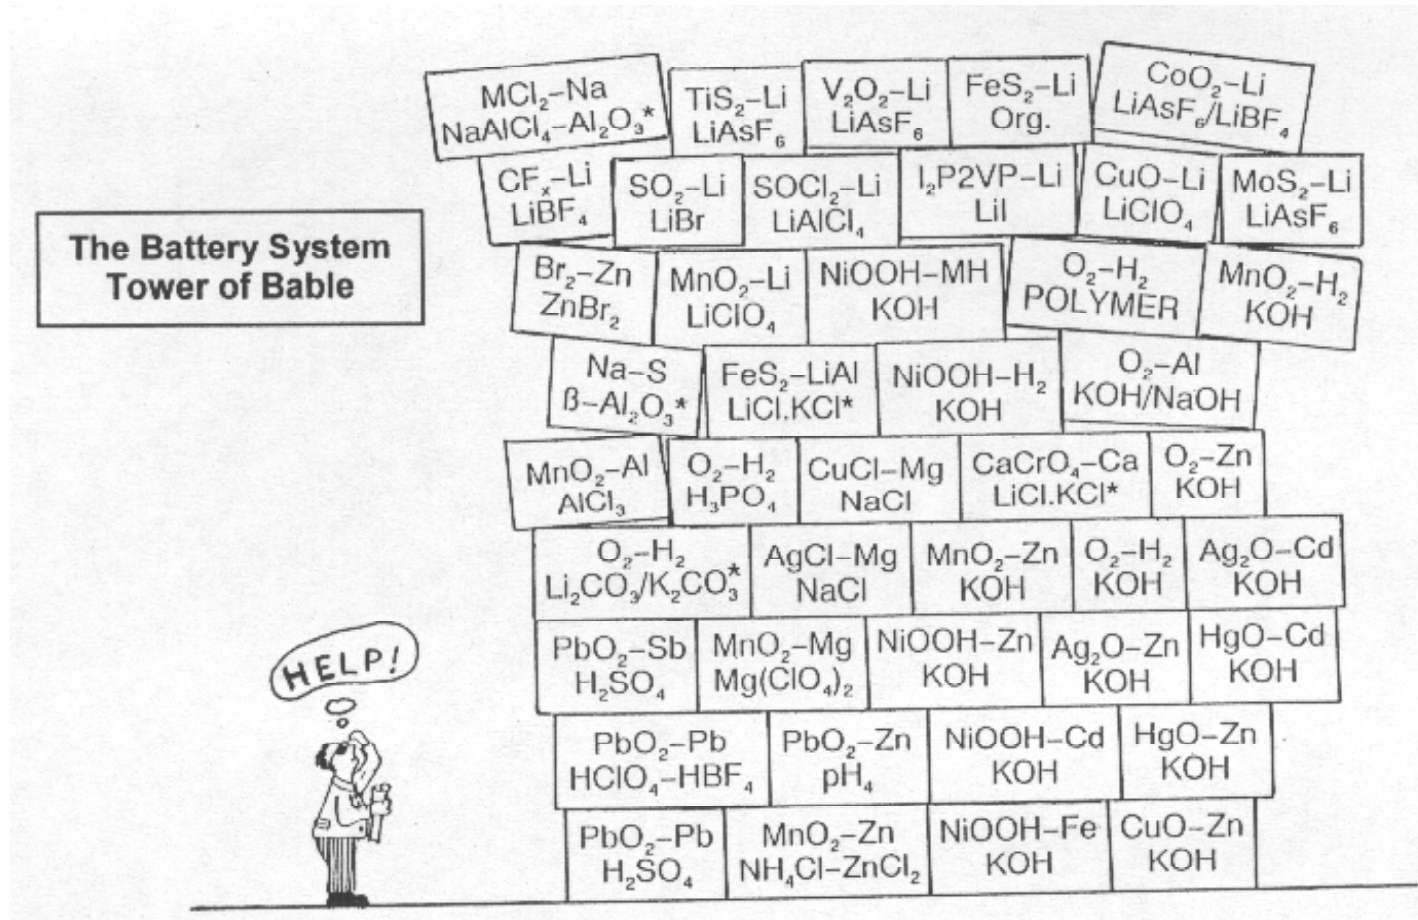 MCl₂–Na
NaAlCl₄–Al₂O₃*
TiS₂–Li
LiAsF₆
V₂O₂–Li
LiAsF₆
FeS₂–Li
Org.
CoO₂–Li
LiAsF₆/LiBF₄
CFₓ–Li
LiBF₄
SO₂–Li
LiBr
SOCl₂–Li
LiAlCl₄
I₂P2VP–Li
LiI
CuO–Li
LiClO₄
MoS₂–Li
LiAsF₆
The Battery System
Tower of Bable
Br₂–Zn
ZnBr₂
MnO₂–Li
LiClO₄
NiOOH–MH
KOH
O₂–H₂
POLYMER
MnO₂–H₂
KOH
Na–S
ß–Al₂O₃*
FeS₂–LiAl
LiCl.KCl*
NiOOH–H₂
KOH
O₂–Al
KOH/NaOH
MnO₂–Al
AlCl₃
O₂–H₂
H₃PO₄
CuCl–Mg
NaCl
CaCrO₄–Ca
LiCl.KCl*
O₂–Zn
KOH
O₂–H₂
Li₂CO₃/K₂CO₃*
AgCl–Mg
NaCl
MnO₂–Zn
KOH
O₂–H₂
KOH
Ag₂O–Cd
KOH
HELP!
PbO₂–Sb
H₂SO₄
MnO₂–Mg
Mg(ClO₄)₂
NiOOH–Zn
KOH
Ag₂O–Zn
KOH
HgO–Cd
KOH
PbO₂–Pb
HClO₄–HBF₄
PbO₂–Zn
pH₄
NiOOH–Cd
KOH
HgO–Zn
KOH
PbO₂–Pb
H₂SO₄
MnO₂–Zn
NH₄Cl–ZnCl₂
NiOOH–Fe
KOH
CuO–Zn
KOH